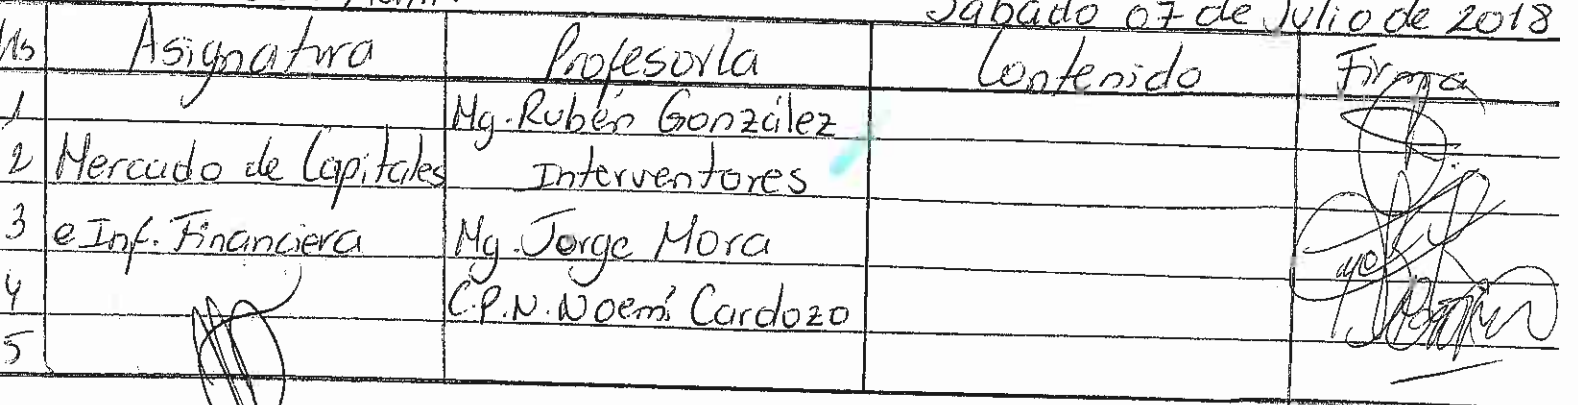 Sábado 07 de Julio de 2018
Hs Asignatura Profesor/a Contenido Firma
1 Mg. Rubén González
2 Mercado de Capitales Interventores
3 e Inf. Financiera Mg. Jorge Mora
4 C.P.N. Noemí Cardozo
5